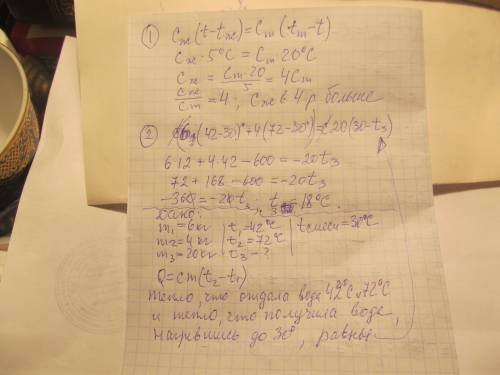 ① Cж(t-tж)=Cт(tт-t)
Cж·5°C = Cт·20°C
Cж = Cт·20/5 = 4Cт
Cж/Cт = 4; Cж в 4 р больше
② (42-30)°+4(72-30°)=20(30-t₃)
6·12+4·42-600=-20t₃
72+168-600=-20t₃
-360=-20t₃; t₃=18°C.
Дано:
m₁=6кг | t₁=42°C | tсмеси=30°C
m₂=4кг | t₂=72°C
m₃=20кг | t₃-?
Q=cm(t₂-t₁)
Тепло, что отдала вода 42°C и 72°C
и тепло, что получила вода,
нагревшись до 30°, равны